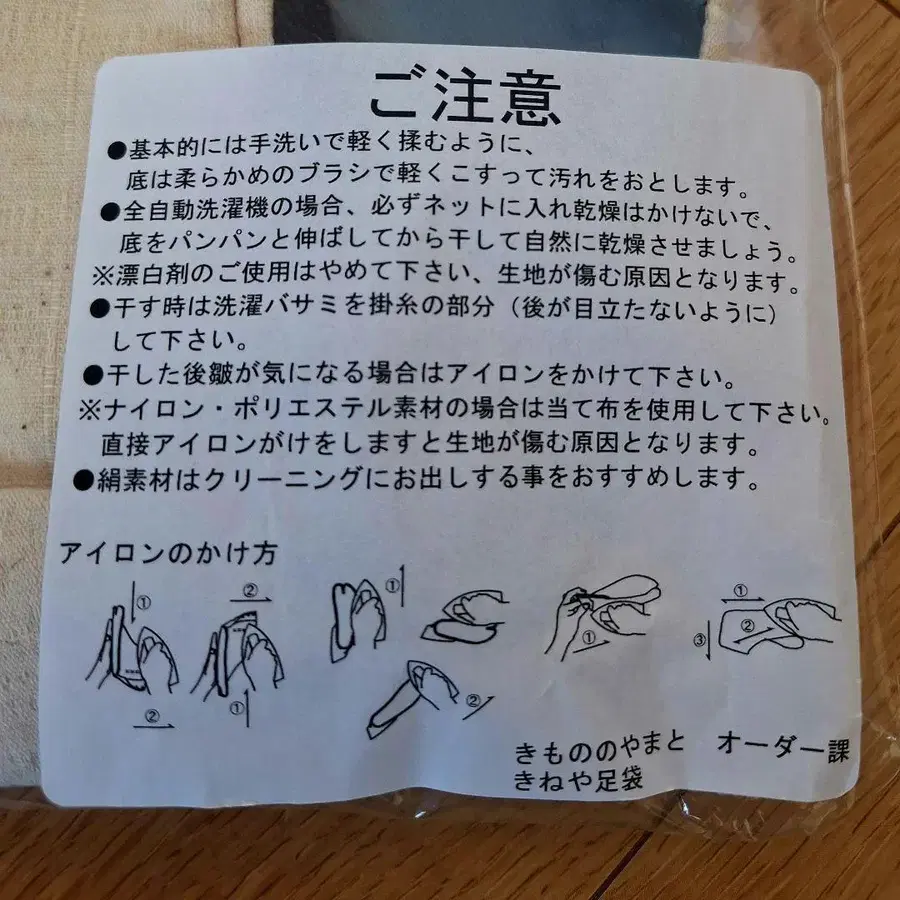 ご注意
●基本的には手洗いで軽く揉むように、
底は柔らかめのブラシで軽くこすって汚れをおとします。
●全自動洗濯機の場合、必ずネットに入れ乾燥はかけないで、
底をパンパンと伸ばしてから干して自然に乾燥させましょう。
※漂白剤のご使用はやめて下さい、生地が傷む原因となります。
●干す時は洗濯バサミを掛糸の部分（後が目立たないように）
して下さい。
●干した後皺が気になる場合はアイロンをかけて下さい。
※ナイロン・ポリエステル素材の場合は当て布を使用して下さい。
直接アイロンがけをしますと生地が傷む原因となります。
●絹素材はクリーニングにお出しする事をおすすめします。
アイロンのかけ方
① ② ② ①
① ②
①
① ② ③
きもののやまと オーダー課
きねや足袋